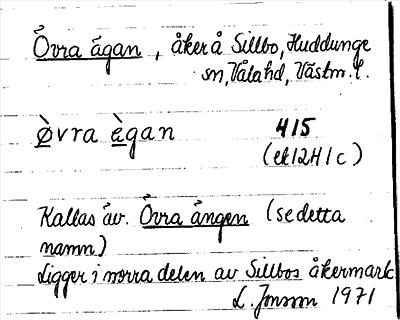 Övra ägan, åker å Sillbo, Huddunge
sn, Våla hd, Västm. l.
Òvra ègan 415
(ek12H1c)
Kallas äv. Övra ängen (se detta
namn)
Ligger i norra delen av Sillbos åkermark
L. Jonsson 1971